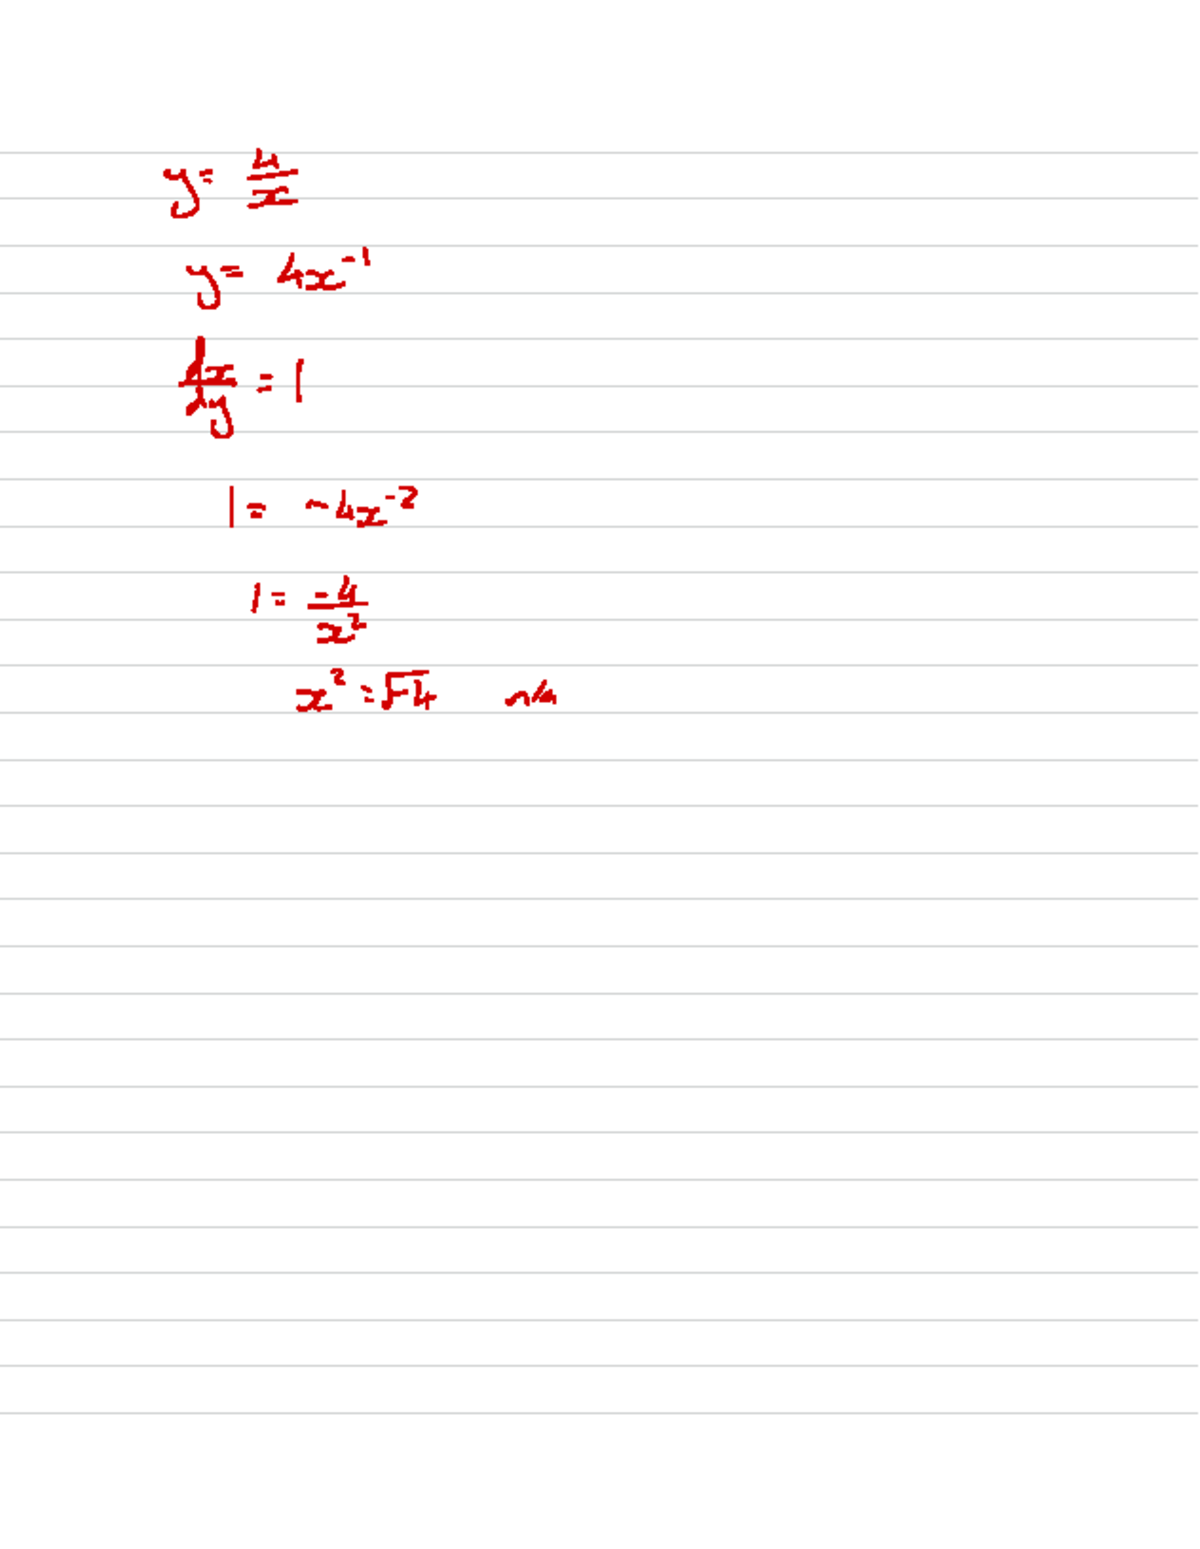 y = 4/x
y = 4x⁻¹
dx/dy = 1
1 = -4x⁻²
1 = -4/x²
x² = √-4 n/a